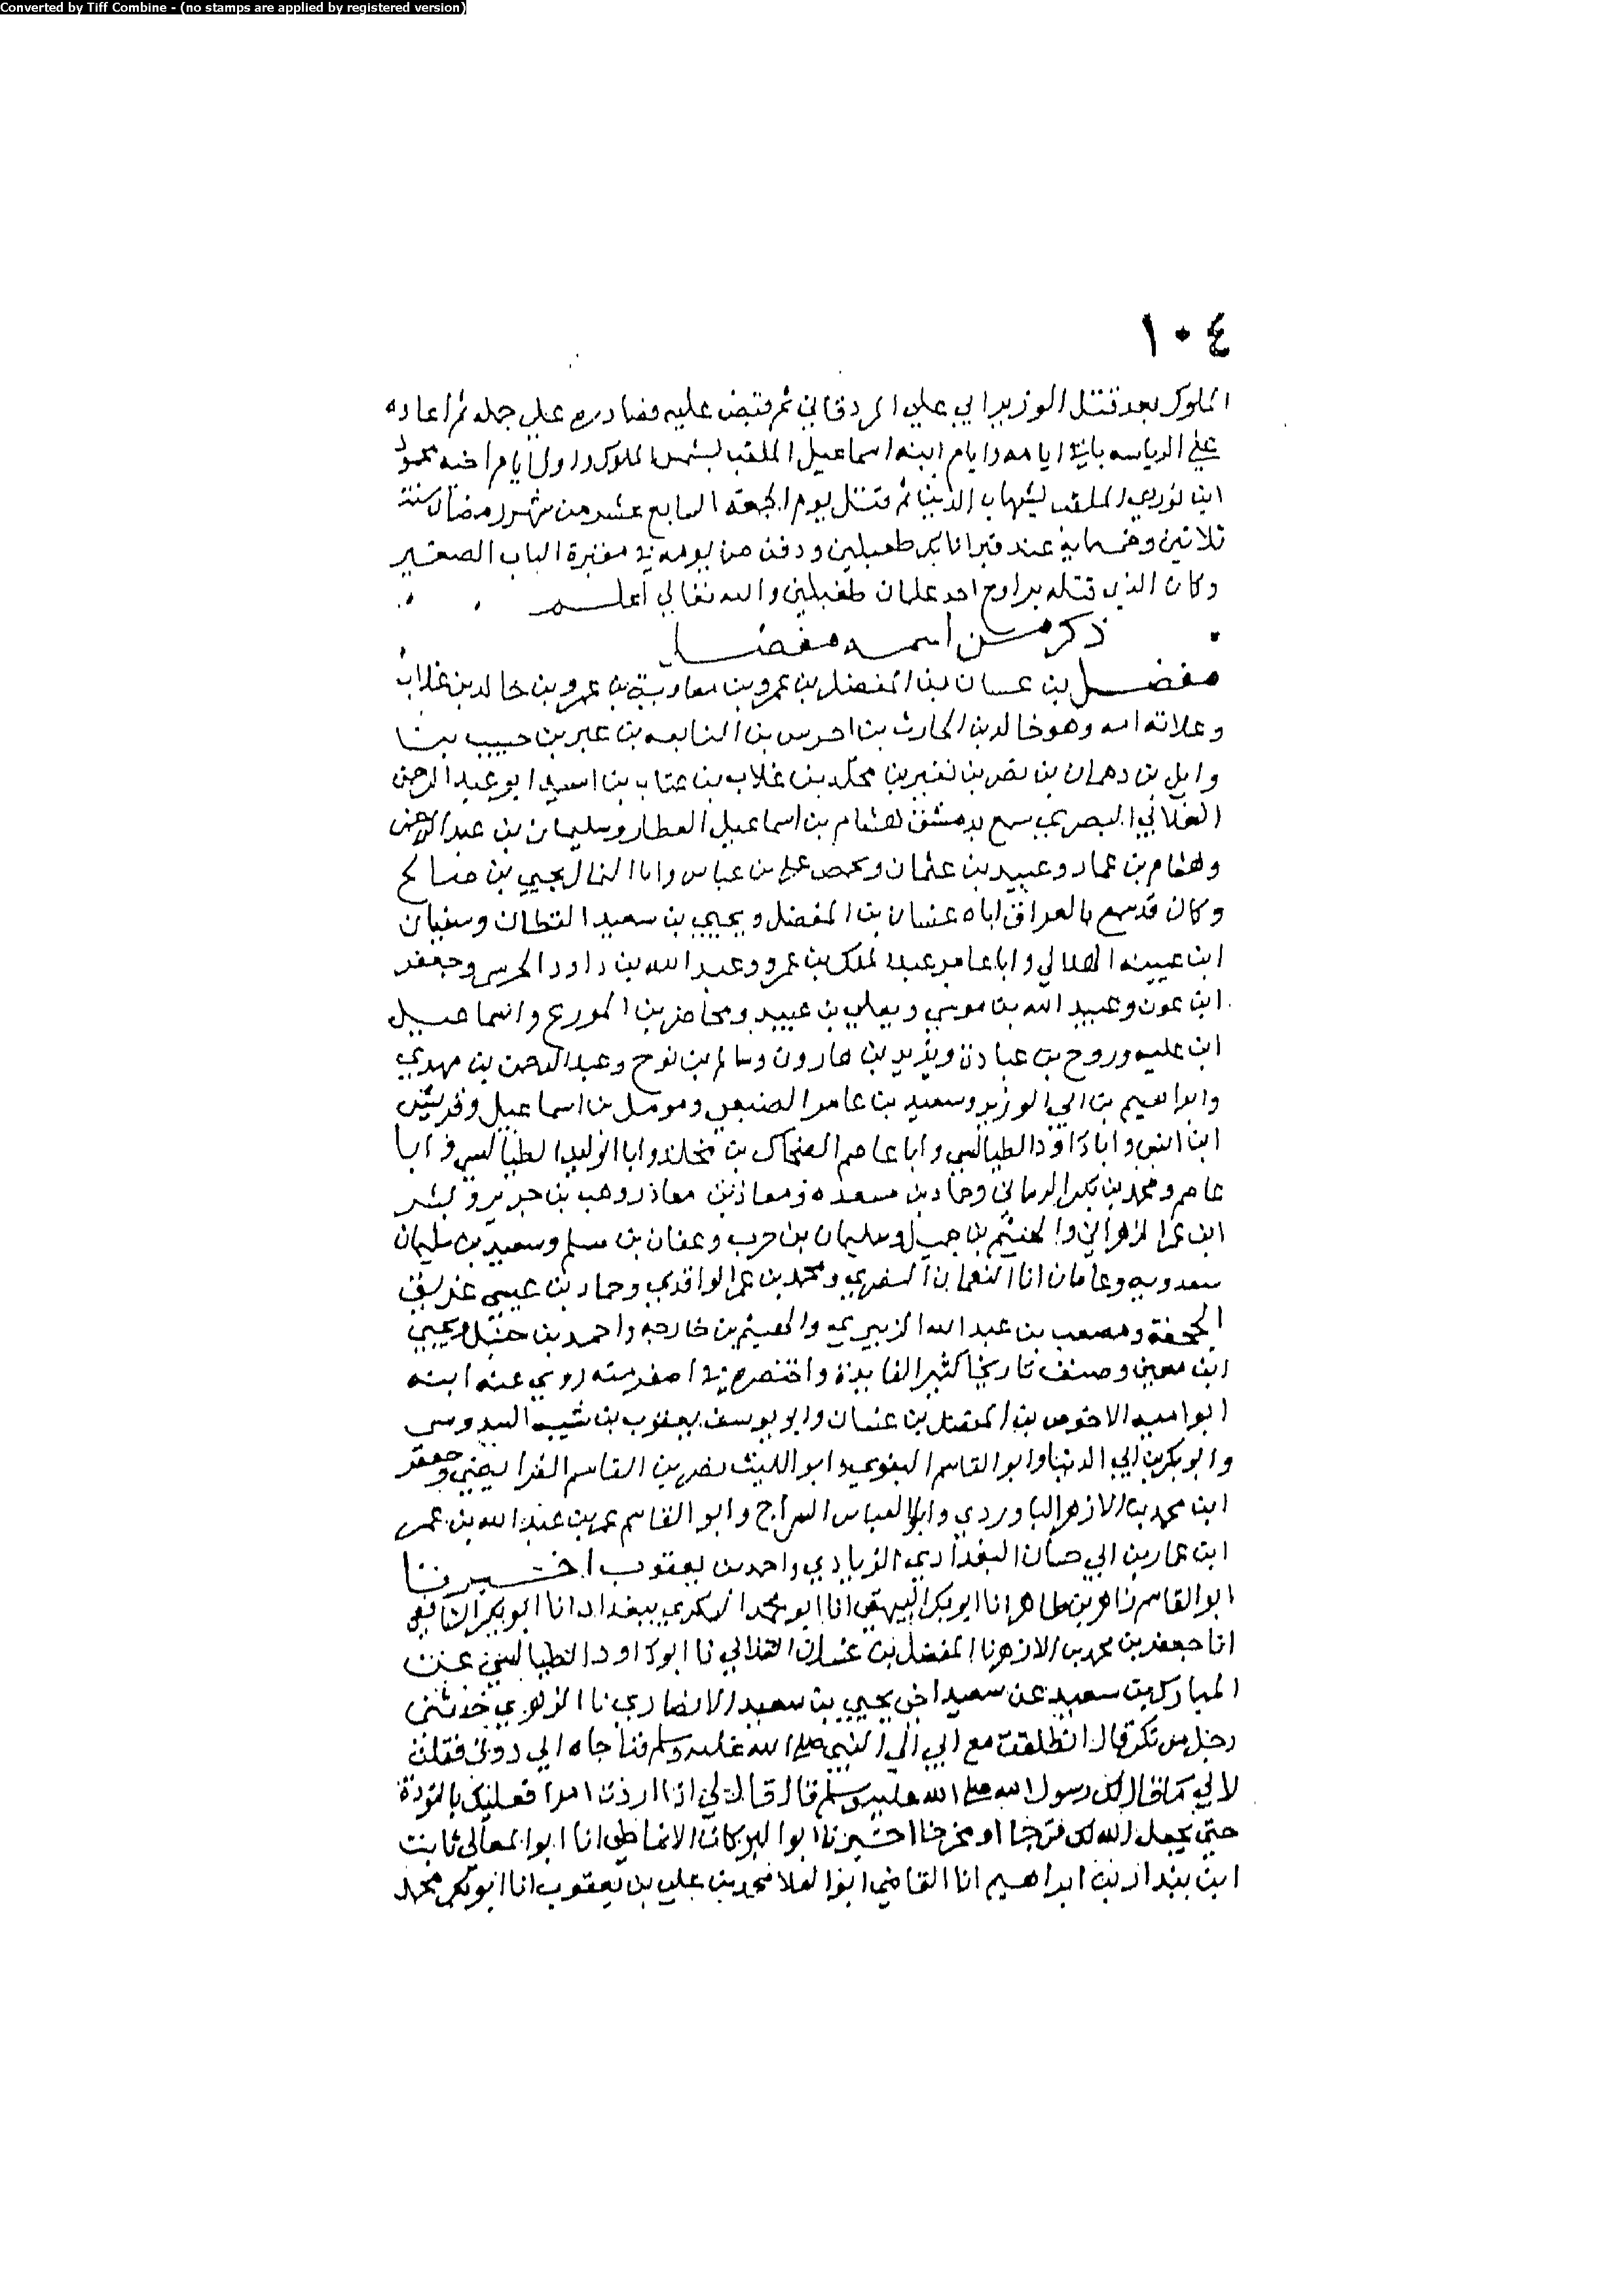 Converted by Tiff Combine - (no stamps are applied by registered version)
١٠٤
الملوك بعد قتل الوزير ابي علي المردقاني ثم قبض عليه فصادره علي جمله ثم اعاده
علي الرياسه باقي ايامه وايام ابنه اسماعيل الملقب بشمس الملوك واول ايام اخيه محمود
ابن بوري الملقب بشهاب الدين ثم قتل يوم الجمعة السابع عشر من شهر رمضان سنة
ثلاثين وخمسماية عند قبر اتابك طغتكين ودفن من يومه في مقبرة الباب الصغير
وكان الذي قتله احد غلمان طغتكين والله تعالي اعلم
ذكر من اسمه مفضل
مفضل بن غسان بن المفضل بن عمرو بن معاوية بن عمرو بن خالد بن غلاب
وغلاب امه وهو خالد بن الحارث بن احرس بن النابغه بن عبر بن حبيب بن
وايل بن دهمان بن نصر بن بن غلاب بن عتاب بن اسيد ابو عبد الرحمن
الغلابي البصري سمع بدمشق هشام بن اسماعيل العطار وسليمان بن عبد الرحمن
وهشام بن عمار وعبيد بن عثمان وبحمص علي بن عباس وابا يحيي بن صالح
وكان قد سمع بالعراق اباه غسان بن المفضل ويحيي بن سعيد القطان وسفيان
ابن عيينه الهلالي وابا عامر عبد الملك بن عمرو وعبد الله بن داود الحربي وجعفر
ابن عون وعبيد الله بن موسي ويعلي بن عبيد ومحاضر بن المورع واسماعيل
ابن عليه وروح بن عبادة ويزيد بن هارون وسالم بن نوح وعبد الرحمن بن مهدي
وابراهيم بن ابي الوزير وسعيد بن عامر الضبعي ومومل بن اسماعيل وقريش
ابن انس وابا داود الطيالسي وابا عاصم الضحاك بن مخلد وابا الوليد الطيالسي وابا
عامر ومحمد بن بكير الرماني وحماد بن مسعده ومعاذ بن معاذ ووهب بن جرير وبشر
ابن عمر الزهراني والهيثم بن جميل وسليمان بن حرب وعفان بن مسلم وسعيد بن سليمان
سعدويه وعارمان ابا النعمان ومحمد بن عمر الواقدي وحماد بن عيسي غريق
الجحفة ومصعب بن عبد الله الزبيري والهيثم بن خارجه واحمد بن حنبل ويحيي
ابن معين وصنف تاريخا كثير الفايدة واختصره في اصغر منه روي عنه ابنه
ابو اميه الاحوص بن المفضل بن غسان وابو يوسف يعقوب بن شيبه السدوسي
وابو بكر بن ابي الدنيا وابو القاسم البغوي وابو الليث نصر بن القاسم الفرايضي وجعفر
ابن محمد بن الازهر الباوردي وابو العباس السراج وابو القاسم عمر بن عبد الله بن عمر
ابن عمار بن ابي حسان البغدادي الزيادي واحمد بن يعقوب اخبرنا
ابو القاسم زاهر بن طاهر انا ابو بكر البيهقي انا ابو محمد السكري ببغداد انا ابو بكر الشافعي
انا جعفر بن محمد بن الازهر نا المفضل بن غسان الغلابي نا ابو داود الطيالسي عن
المبارك بن سعيد عن سعيد اخي يحيي بن سعيد الانصاري نا الزهري حدثني
رجل من قال انطلقت مع ابي الي النبي صلي الله عليه وسلم فناجاه ابي دوني فقلت
لابي ما قال لك رسول الله صلي الله عليه وسلم قال قال لي اذا اردت امرا فعليك بالتؤدة
حتي يجعل الله لك فرجا او مخرجا اخبرنا ابو البركات الانماطي انا ابو المعالي ثابت
ابن بندار بن ابراهيم انا القاضي ابو العلا محمد بن علي بن يعقوب انا ابو بكر محمد